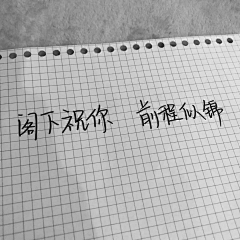 阁下祝你、前程似锦